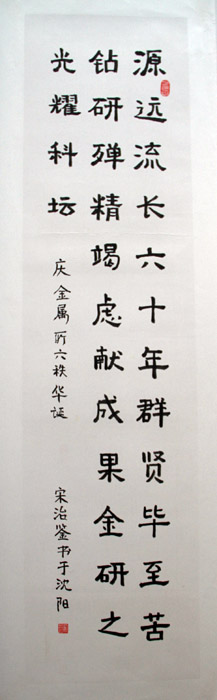 源远流长六十年群贤毕至苦
钻研殚精竭虑献成果金研之
光耀科坛
庆金属所六秩华诞
宋治鉴书于沈阳